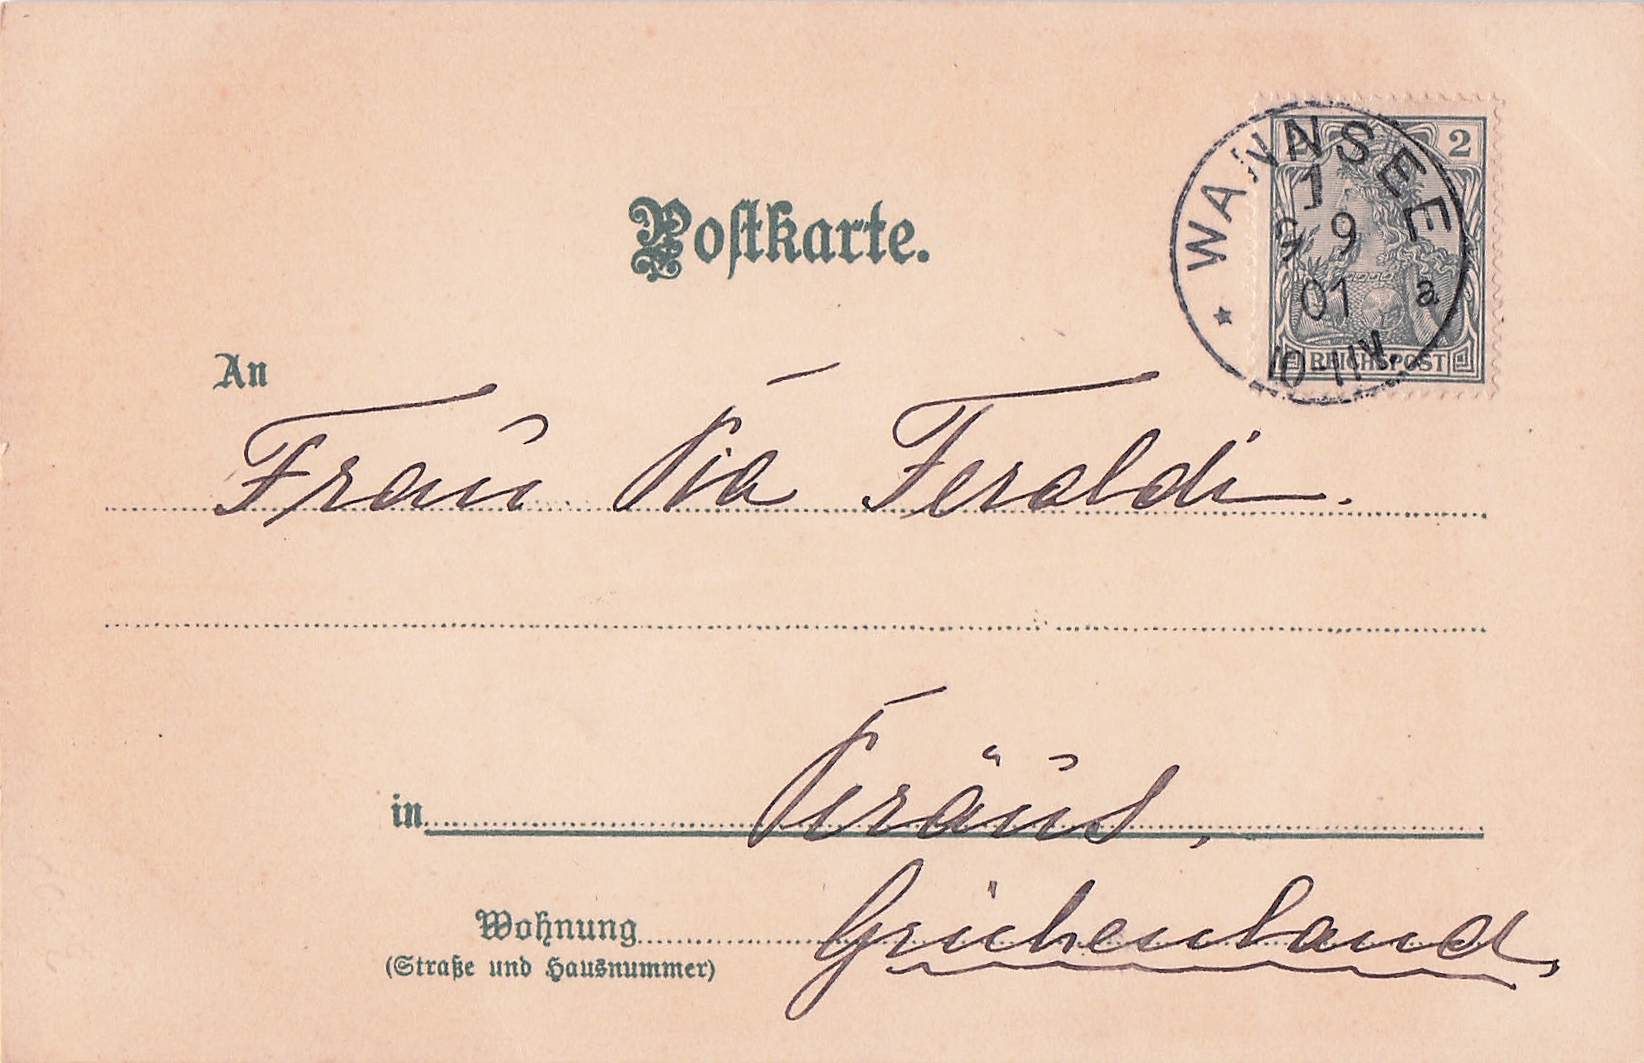 Postkarte.
2 2
REICHSPOST
WANNSEE
1
9
01 a
10-11V.
An
Frau Pia Feraldi.
in Piräus,
Wohnung Griechenland,
(Straße und Hausnummer)